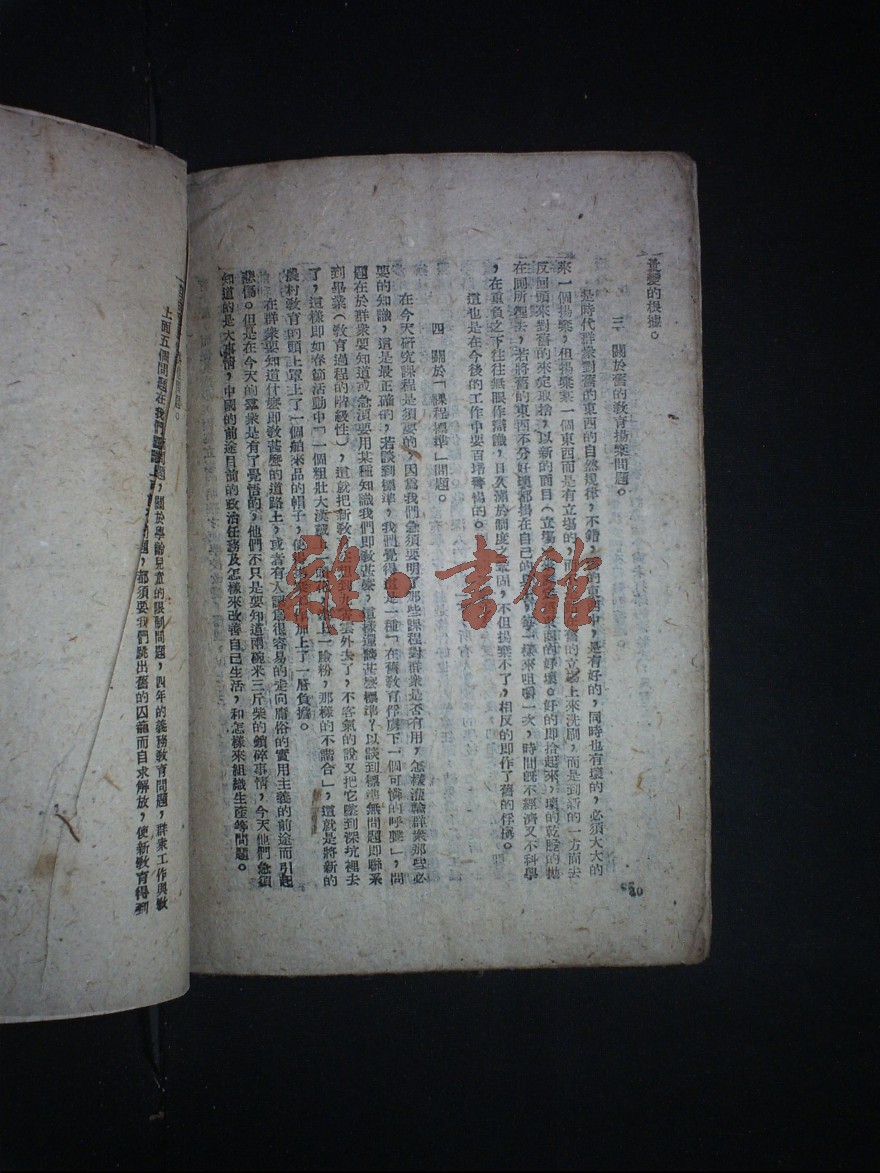 質變的根據。
三 關於舊的教育揚棄問題。
是時代群衆對舊的東西的自然規律,不錯,的東西中,是有好的,同時也有壞的,必須大大的
來一個揚棄,但揚棄一個東西而是有立場的,而舊的立場上來洗刷,而是到新的一方面去
反回頭來對舊的來定取捨,以新的面目(立場東西的好壞。好的即拾起來,壞的乾脆的拋
在厠所裡去,若將舊的東西不分好壞都掛在自己的身每一樣來咀嚼一次,時間旣不經濟又不科學
,在重負之下往往無眼作辯識,日久溺於制度之鞏固,不但揚棄不了,相反的即作了舊的俘擄。
這也是在今後的工作中要百倍警惕的。
四 關於「課程標準」問題。
在今天研究課程是須要的,因爲我們急須要明了那些課程對群衆是否有用,怎樣灌輸群衆那些必
要的知識,這是最正確的,若談到標準,我們覺得這是一種「在舊教育俘虜下一個可憐的呼聲」,問
題在於群衆要知道或急須要用某種知識我們即敎甚麽,這樣還談甚麽標準?以談到標準無問題即聯系
到畢業(敎育過程的階級性),這就把新敎到九霄雲外去了,不客氣的說又把它墜到深坑裡去
了,這樣即如春節活動中「一個粗壯大漢戴上一頭上一臉粉,那樣的不諧合」,這就是將新的
農村敎育的頭上罩上了一個舶來品的帽子,使加上了一層負擔。
在群衆要知道什麽即敎甚麽的道路上,或者有人認爲很容易的走向庸俗的實用主義的前途而引起
悲傷。但是在今天的羣衆是有了覺悟的,他們不只是要知道兩碗米三斤柴的鎖碎事情,今天他們急須
知道的是大事情,中國的前途目前的政治任務及怎樣來改善自己生活,和怎樣來組織生產等問題。
上面五個問題在我們問題,關於學齡兒童的限制問題,四年的義務敎育問題,群衆工作與敎
問題,都須要我們跳出舊的囚籠而自求解放,使新敎育得到
雜·書館